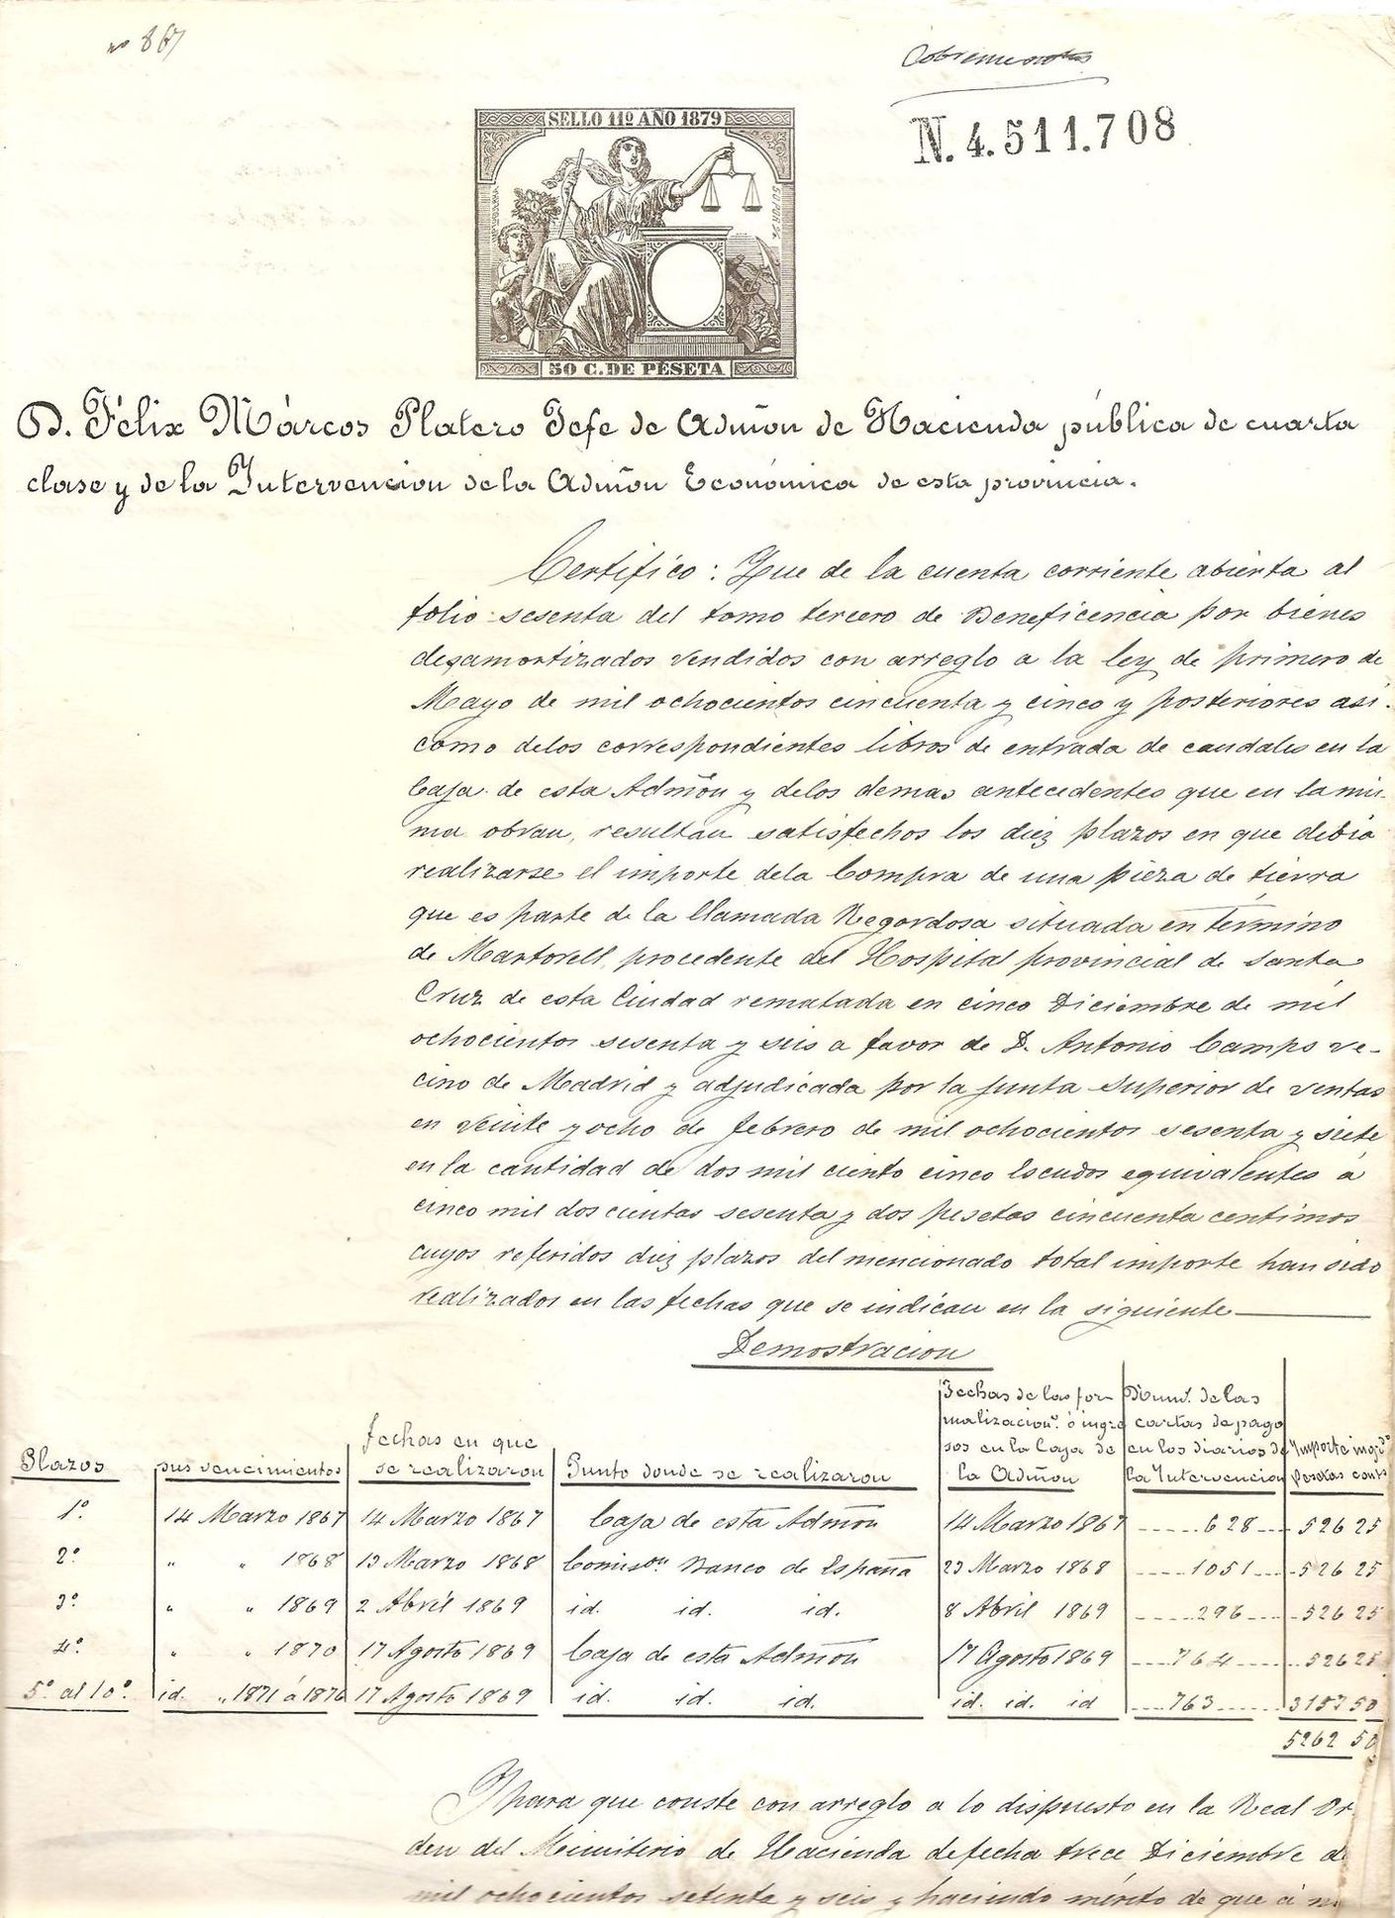 nº 867
N. 4.511.708
SELLO 11º AÑO 1879
50 C. DE PESETA
D. Félix Márcos Platero Jefe de Admõn de Hacienda pública de cuarta
clase y de la Intervencion de la Admõn Económica de esta provincia.
Certifico: Que de la cuenta corriente abierta al
folio sesenta del tomo tercero de Beneficencia por bienes
desamortizados vendidos con arreglo a la ley de primero de
Mayo de mil ochocientos cincuenta y cinco y posteriores asi
como delos correspondientes libros de entrada de caudales en la
Caja de esta Admõn y delos demas antecedentes que en la mis-
ma obran, resultan satisfechos los diez plazos en que debia
realizarse el importe dela Compra de una pieza de tierra
que es parte de la llamada Regordosa situada en término
de Martorell, procedente del Hospital provincial de Santa
Cruz de esta Ciudad rematada en cinco Diciembre de mil
ochocientos sesenta y seis a favor de D. Antonio Camps ve-
cino de Madrid y adjudicada por la junta superior de ventas
en veinte y ocho de febrero de mil ochocientos sesenta y siete
en la cantidad de dos mil ciento cinco Escudos equivalentes á
cinco mil doscientas sesenta y dos pesetas cincuenta centimos
cuyos referidos diez plazos del mencionado total importe han sido
realizados en las fechas que se indican en la siguiente
Demostracion
Plazos sus vencimientos fechas en que se realizaron Punto donde se realizaron Fechas de las formalizacionˢ. ó ingresos en la Caja de la Admõn Numˢ. de las cartas de pago en los diarios de la Intervencion Importe ingrᵈᵒ Pesetas centˢ
1º. 14 Marzo 1867 14 Marzo 1867 Caja de esta Admõn 14 Marzo 1867 628 526 25
2º " " 1868 13 Marzo 1868 Comisᵒⁿ. Banco de España 23 Marzo 1868 1051 526 25
3º. " " 1869 2 Abril 1869 id. id. id. 8 Abril 1869 296 526 25
4º. " " 1870 17 Agosto 1869 Caja de esta Admõn 17 Agosto 1869 764 526 25
5º. al 10º. id. " 1871 á 1876 17 Agosto 1869 id. id. id. id. id. id 763 3157 50
5262 50
Y para que conste con arreglo a lo dispuesto en la Real Or-
den del Ministerio de Hacienda de fecha trece Diciembre de
mil ochocientos setenta y seis y haciendo mérito de que á